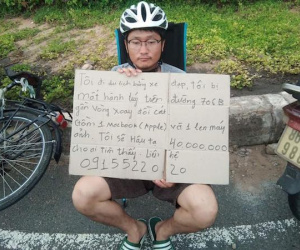 Tôi đi du lịch bằng xe đạp, tôi bị
mất hành lý trên đường 706B
gần vòng xoay đồi cát
Gồm: 1 Macbook (Apple) và 1 len máy
ảnh. Tôi sẽ Hậu tạ 40.000.000
ai có Tìm thấy liên hệ
0915522020